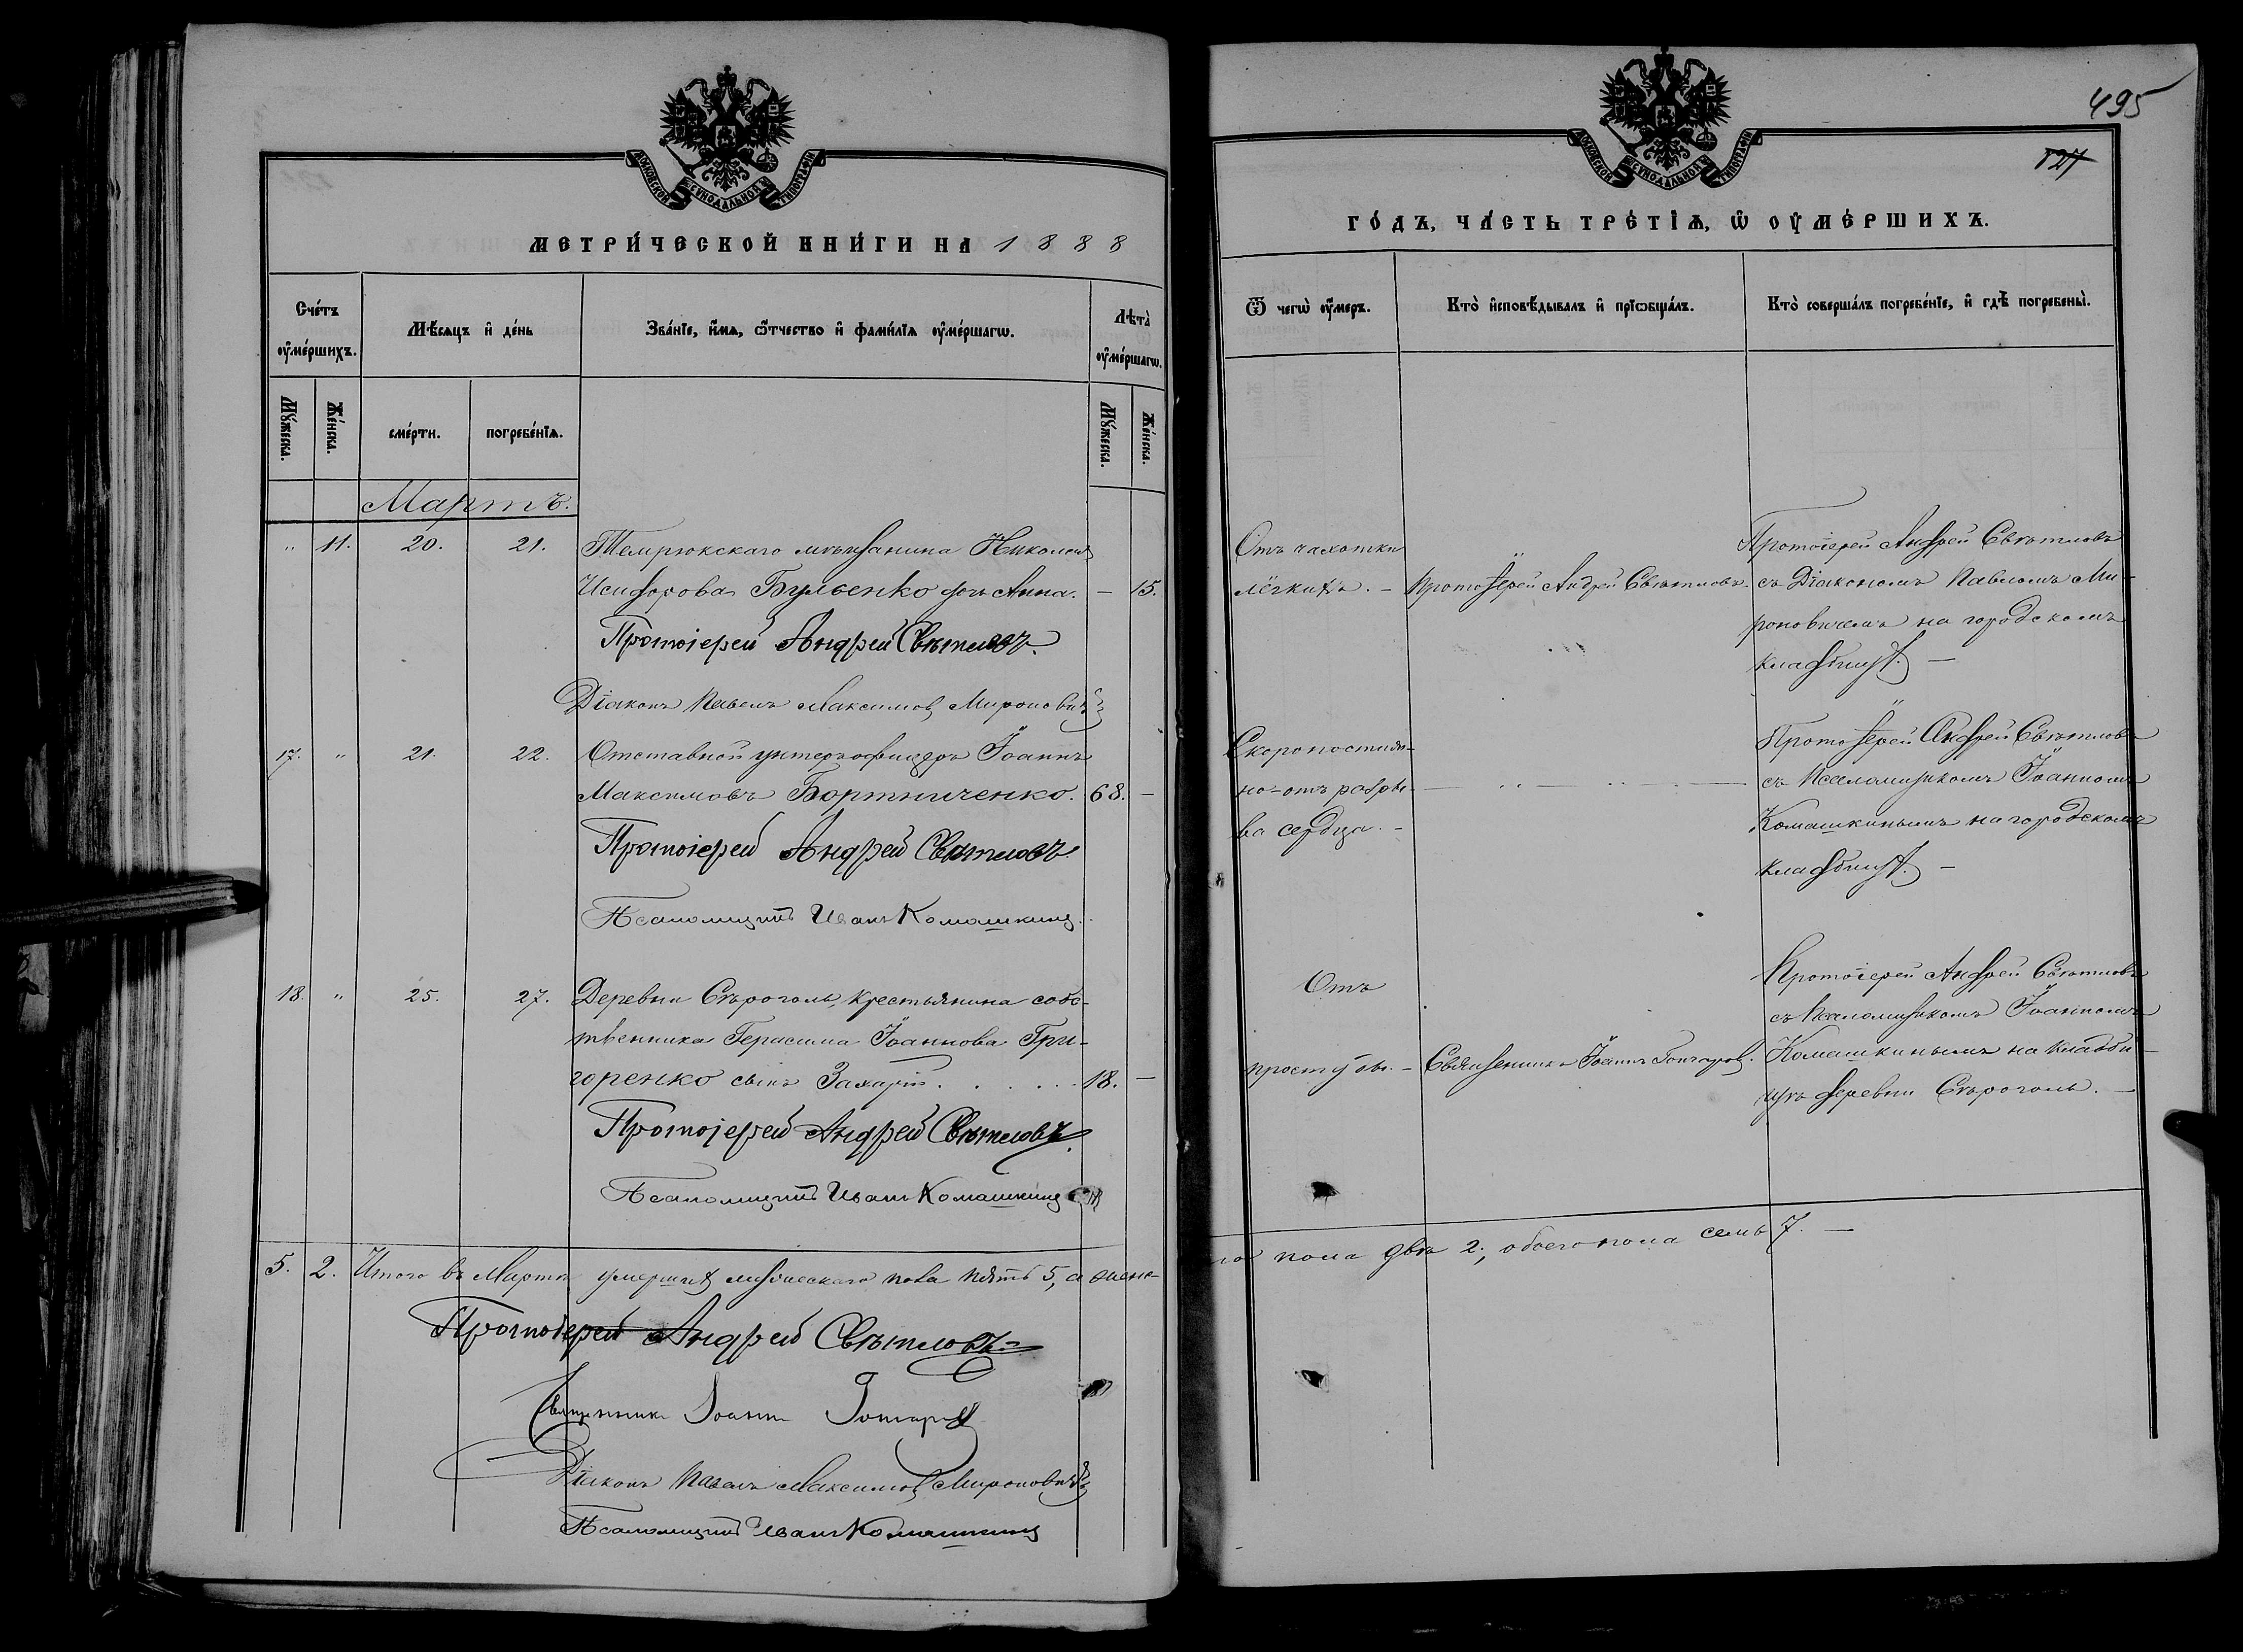 МОСКОВСКОЙ СѴНОДАЛЬНОЙ ТИПОГРАФІИ
МЕТРИ́ЧЕСКОЙ КНИ́ГИ НА 1888
Сче́тъ ᲂу҆ме́ршихъ.
Мѣ́сѧцъ и҆ де́нь
Зва́нїе, и҆́мѧ, ѻ҆́тчество и҆ фами́лїѧ ᲂу҆ме́ршагѡ.
Лѣта̀ ᲂу҆ме́ршагѡ.
Мꙋ́жеска.
Же́нска.
сме́рти.
погребе́нїѧ.
Мꙋ́жеска.
Же́нска.
Мартъ.
" 11. 20. 21. Темрюкскаго мѣщанина Николая
Исидорова Бульенко дочь Анна. — 15.
Протоіерей Андрей Свѣтловъ.
Діаконъ Павелъ Максимов Мироновичъ
17. " 21. 22. Отставной унтеръ-офицеръ Іоаннъ
Максимовъ Бортниченко. 68. —
Протоіерей Андрей Свѣтловъ.
Псаломщикъ Иванъ Комашкинъ.
18. " 25. 27. Деревни Сѣроголь, крестьянина собс-
твенника Герасима Іоаннова Гри-
горенко сынъ Захарій . . . . . . 18. —
Протоіерей Андрей Свѣтловъ.
Псаломщикъ Иванъ Комашкинъ
5. 2. Итого въ Мартѣ умершихъ мужескаго пола пять 5, а женс-
Протоіерей Андрей Свѣтловъ
Священникъ Іоаннъ Гончаровъ
Діаконъ Павелъ Максимов Мироновичъ
Псаломщикъ Иванъ Комашкинъ
495
МОСКОВСКОЙ СѴНОДАЛЬНОЙ ТИПОГРАФІИ
127
ГО́ДЪ, ЧА́СТЬ ТРЕ́ТІѦ, Ѽ ОУ҆МЕ́РШИХЪ.
Ѿ чегѡ̀ ᲂу҆́меръ.
Кто̀ и҆сповѣ́дывалъ и҆ прїѡбща́лъ.
Кто̀ соверша́лъ погребе́нїе, и҆ гдѣ̀ погребены̀.
Отъ чахотки
лёгкихъ. — Протоіерей Андрей Свѣтловъ.
Протоіерей Андрей Свѣтловъ
съ Діакономъ Павломъ Ми-
роновичемъ на городскомъ
кладбищѣ. —
Скоропостиж-
но-отъ разры-
ва сердца. —
Протоіерей Андрей Свѣтловъ
съ Псаломщикомъ Іоанномъ
Комашкинымъ на городскомъ
кладбищѣ. —
Отъ
простуды. — Священникъ Іоаннъ Гончаровъ.
Протоіерей Андрей Свѣтловъ
съ Псаломщикомъ Іоанномъ
Комашкинымъ на кладби-
щѣ деревни Сѣроголь. —
го пола двѣ 2., обоего пола семь 7. —